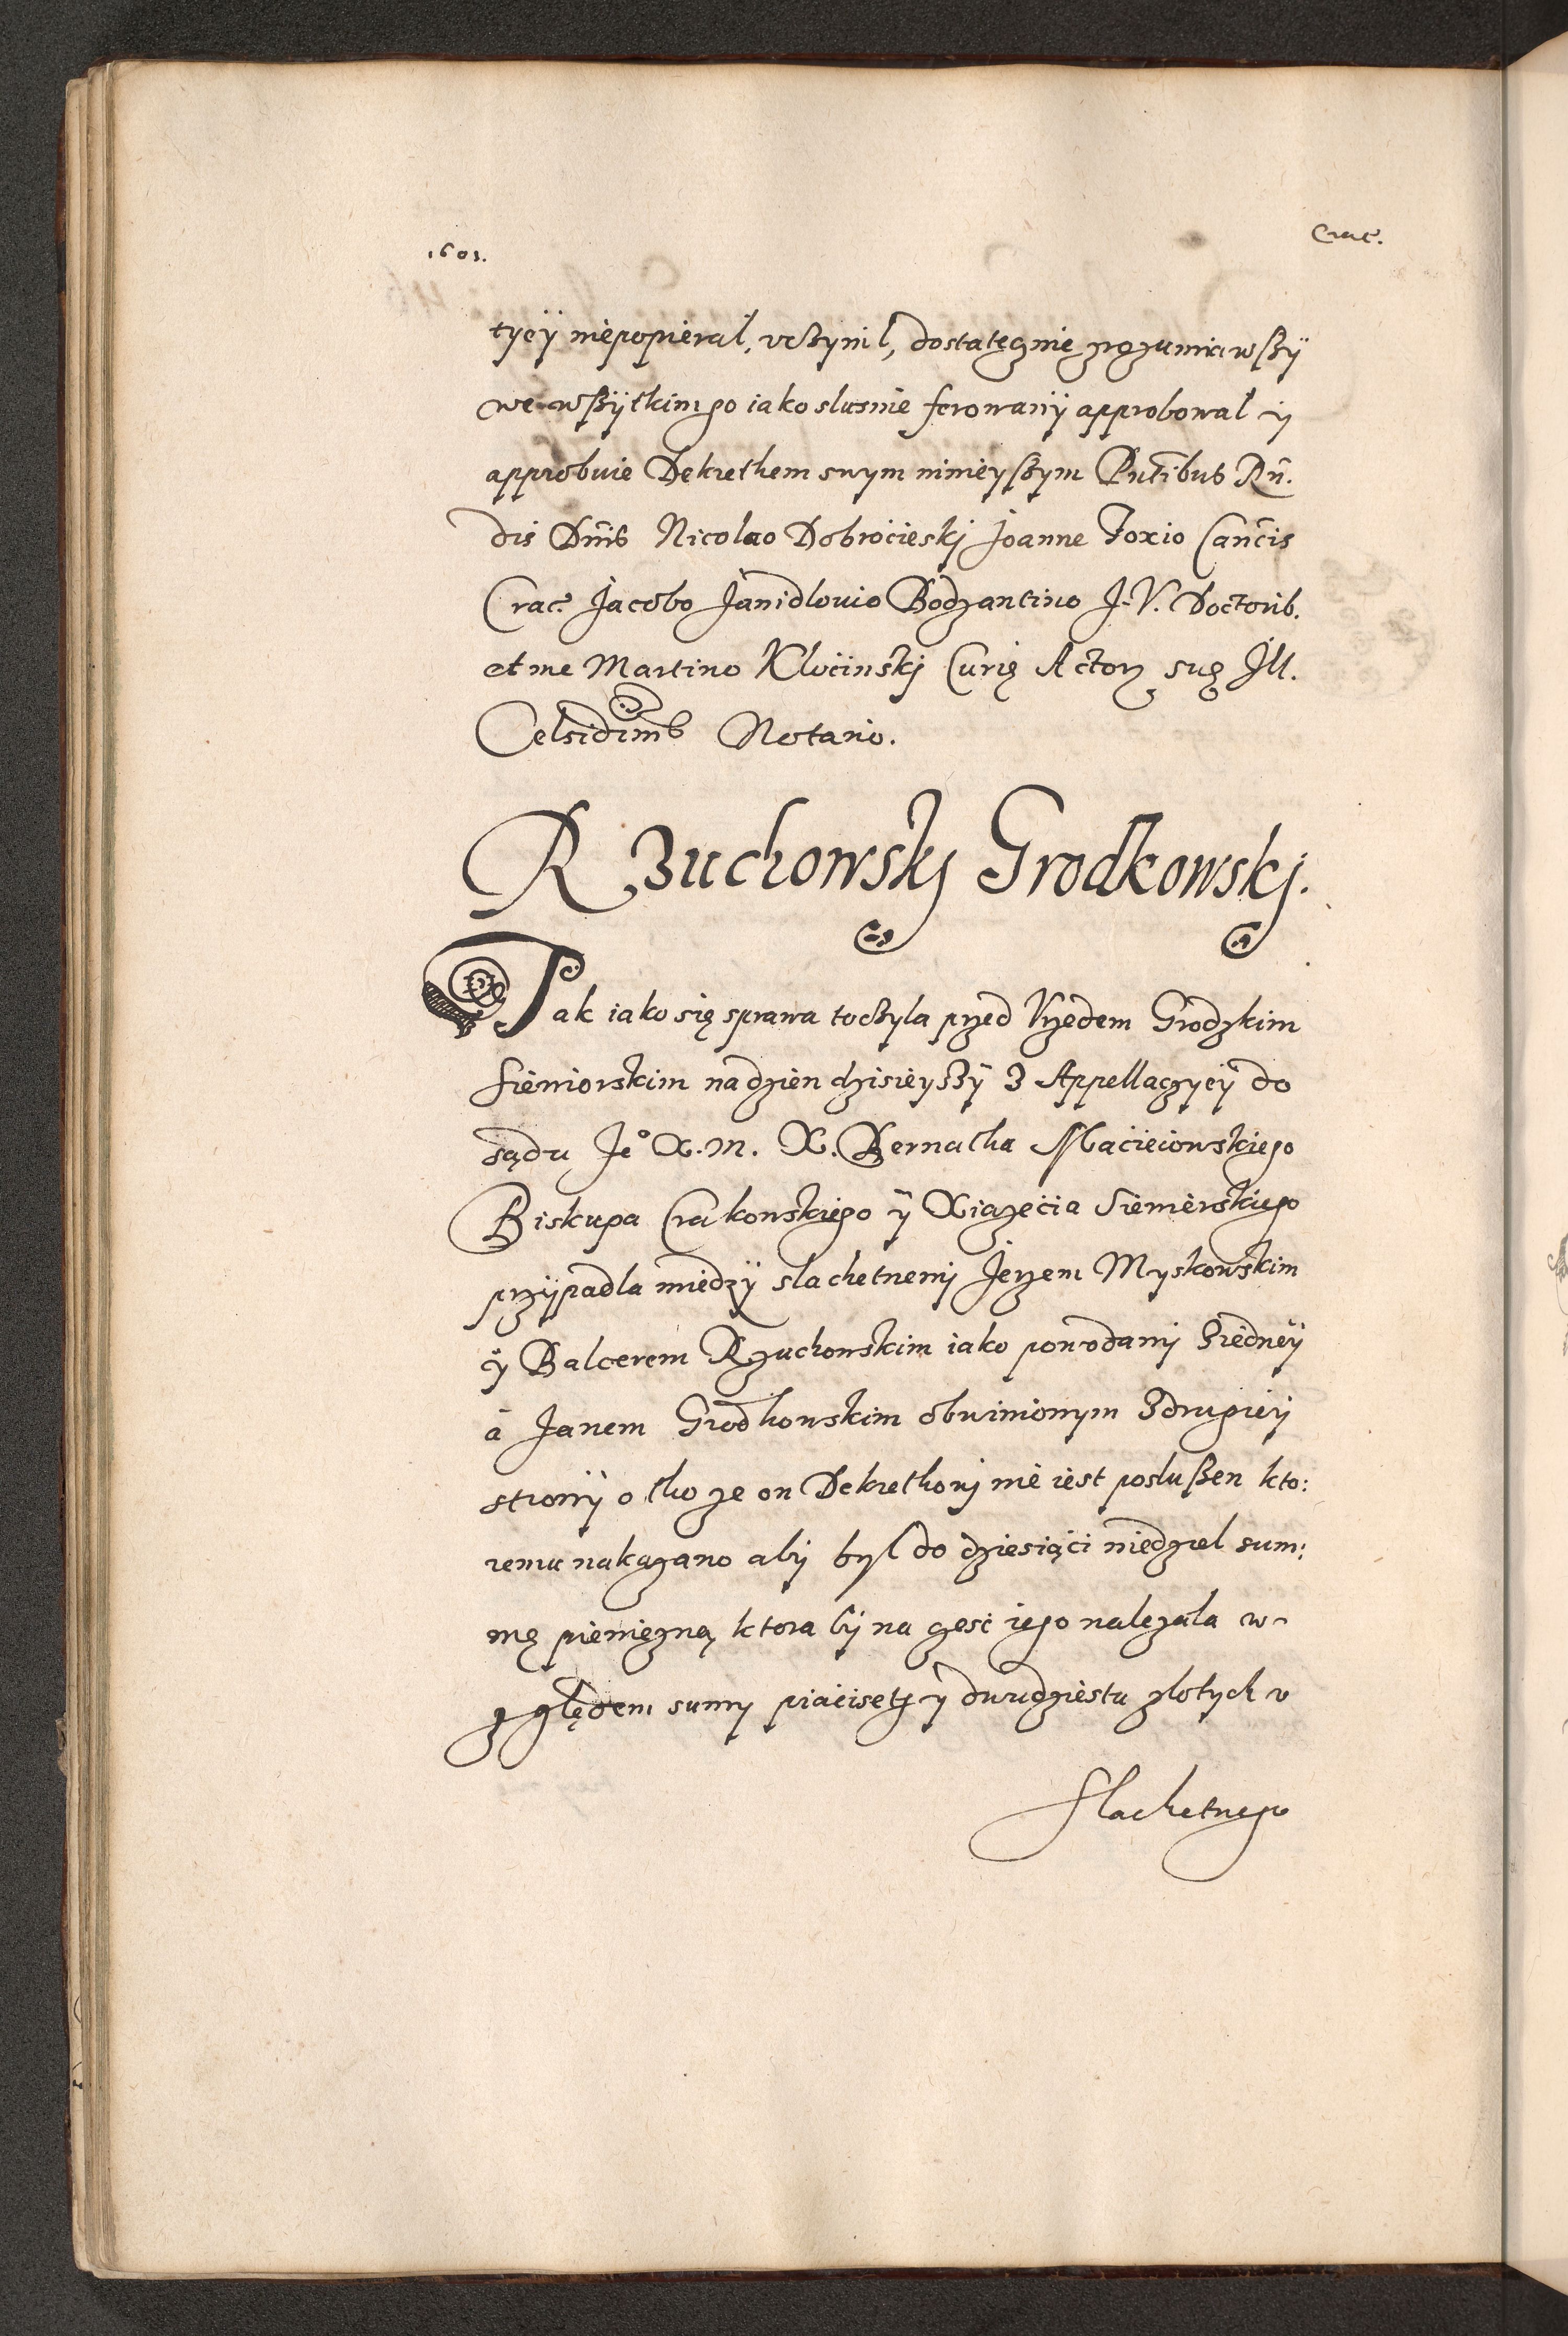 1601.
Crac.
tyçÿ niepopierał, vcʒynil, dostatęcznie zrozumiawszÿ
we wszÿtkim go iako slusnie ferowanÿ approbował ÿ
approbuie Dekrethem swym ninieyszym Pntibus Rn̄.
dis Dnis Nicolao Dobrocieskj Joanne Foxio Cancis
Crac. Jacobo Janidlouio Bodzantino J. V. Doctorib.
et me Martino Klocinskj Curię Actorz suę Ill.
Celsidinis Notario.
Rzuchowskj Grodkowskj.
Tak iako się sprawa tocʒyla przed Vrzedem Grodzkim
Siewiorskim na dzien dzisieyszÿ z Appellaczycÿ do
sądu Je° X. M. X. Bernatha Maciejowskiego
Biskupa Crakowskiego ÿ Xiazecia Siewierskiego
przÿpadla miedzÿ slachetnemj Jerzem Myskowskim
ÿ Balcerem Rzuchowskim iako powodamj ziednėÿ
á Janem Grodkowskim obwinionym zdrugiėÿ
stronÿ o tho ze on Dekrethowj nie iest posluszen kto:
remu nakazano abÿ byl do dziesiąci niedziel sum:
mę pieniezną ktora bÿ na czesc iego nalezala w-
zględem sumy piaciset ÿ dwudziestu zlotych v
Slachetnego